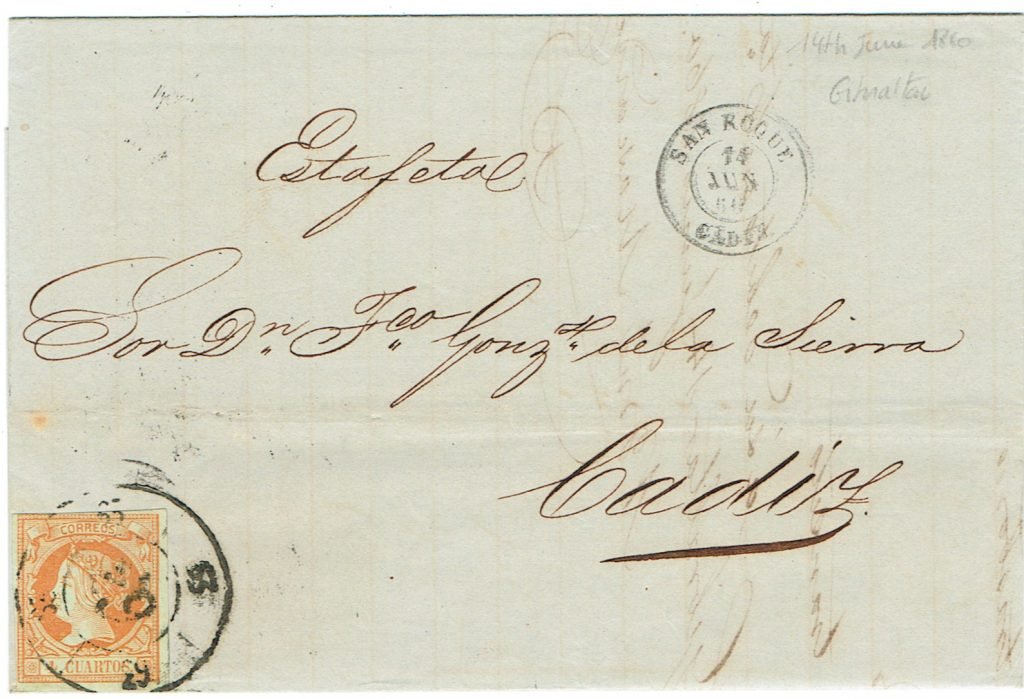 14th June 1860
Gibraltar
Estafeta
SAN ROQUE
14
JUN
60
CADIZ
Sor Dn Fco Gonzz de la Sierra
Cadiz.
CORREOS
4 CUARTOS
63